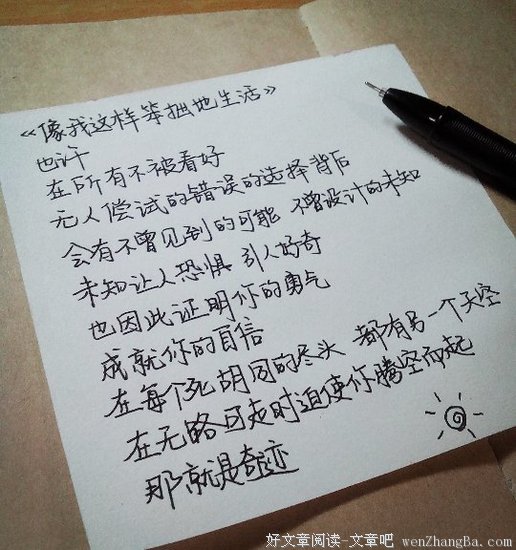 《像我这样笨拙地生活》
也许
在所有不被看好
无人尝试的错误的选择背后
会有不曾见到的可能 不曾设计的未知
未知让人恐惧 引人好奇
也因此证明你的勇气
成就你的自信
在每个死胡同的尽头 都有另一个天空
在无路可走时迫使你腾空而起
那就是奇迹
好文章阅读-文章吧 wenZhangBa.com